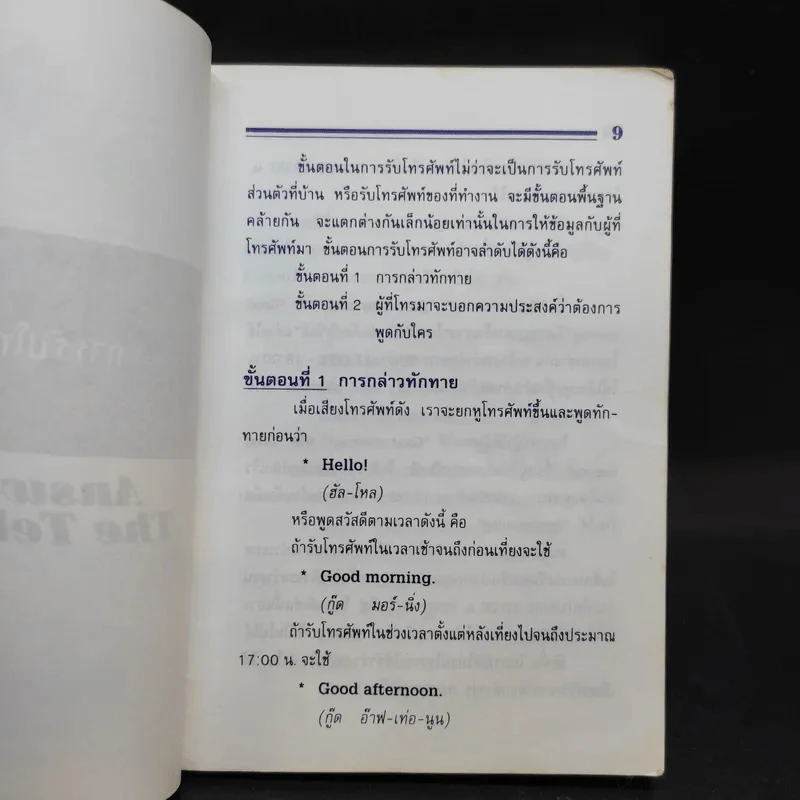 9
ขั้นตอนในการรับโทรศัพท์ไม่ว่าจะเป็นการรับโทรศัพท์
ส่วนตัวที่บ้าน หรือรับโทรศัพท์ของที่ทำงาน จะมีขั้นตอนพื้นฐาน
คล้ายกัน จะแตกต่างกันเล็กน้อยเท่านั้นในการให้ข้อมูลกับผู้ที่
โทรศัพท์มา ขั้นตอนการรับโทรศัพท์อาจลำดับได้ดังนี้คือ
ขั้นตอนที่ 1 การกล่าวทักทาย
ขั้นตอนที่ 2 ผู้ที่โทรมาจะบอกความประสงค์ว่าต้องการ
พูดกับใคร
ขั้นตอนที่ 1 การกล่าวทักทาย
เมื่อเสียงโทรศัพท์ดัง เราจะยกหูโทรศัพท์ขึ้นและพูดทัก-
ทายก่อนว่า
* Hello!
(ฮัล-โหล)
หรือพูดสวัสดีตามเวลาดังนี้ คือ
ถ้ารับโทรศัพท์ในเวลาเช้าจนถึงก่อนเที่ยงจะใช้
* Good morning.
(กู๊ด มอร์-นิ่ง)
ถ้ารับโทรศัพท์ในช่วงเวลาตั้งแต่หลังเที่ยงไปจนถึงประมาณ
17:00 น. จะใช้
* Good afternoon.
(กู๊ด อ๊าฟ-เท่อ-นูน)
การรับโท
Answ
The Tel